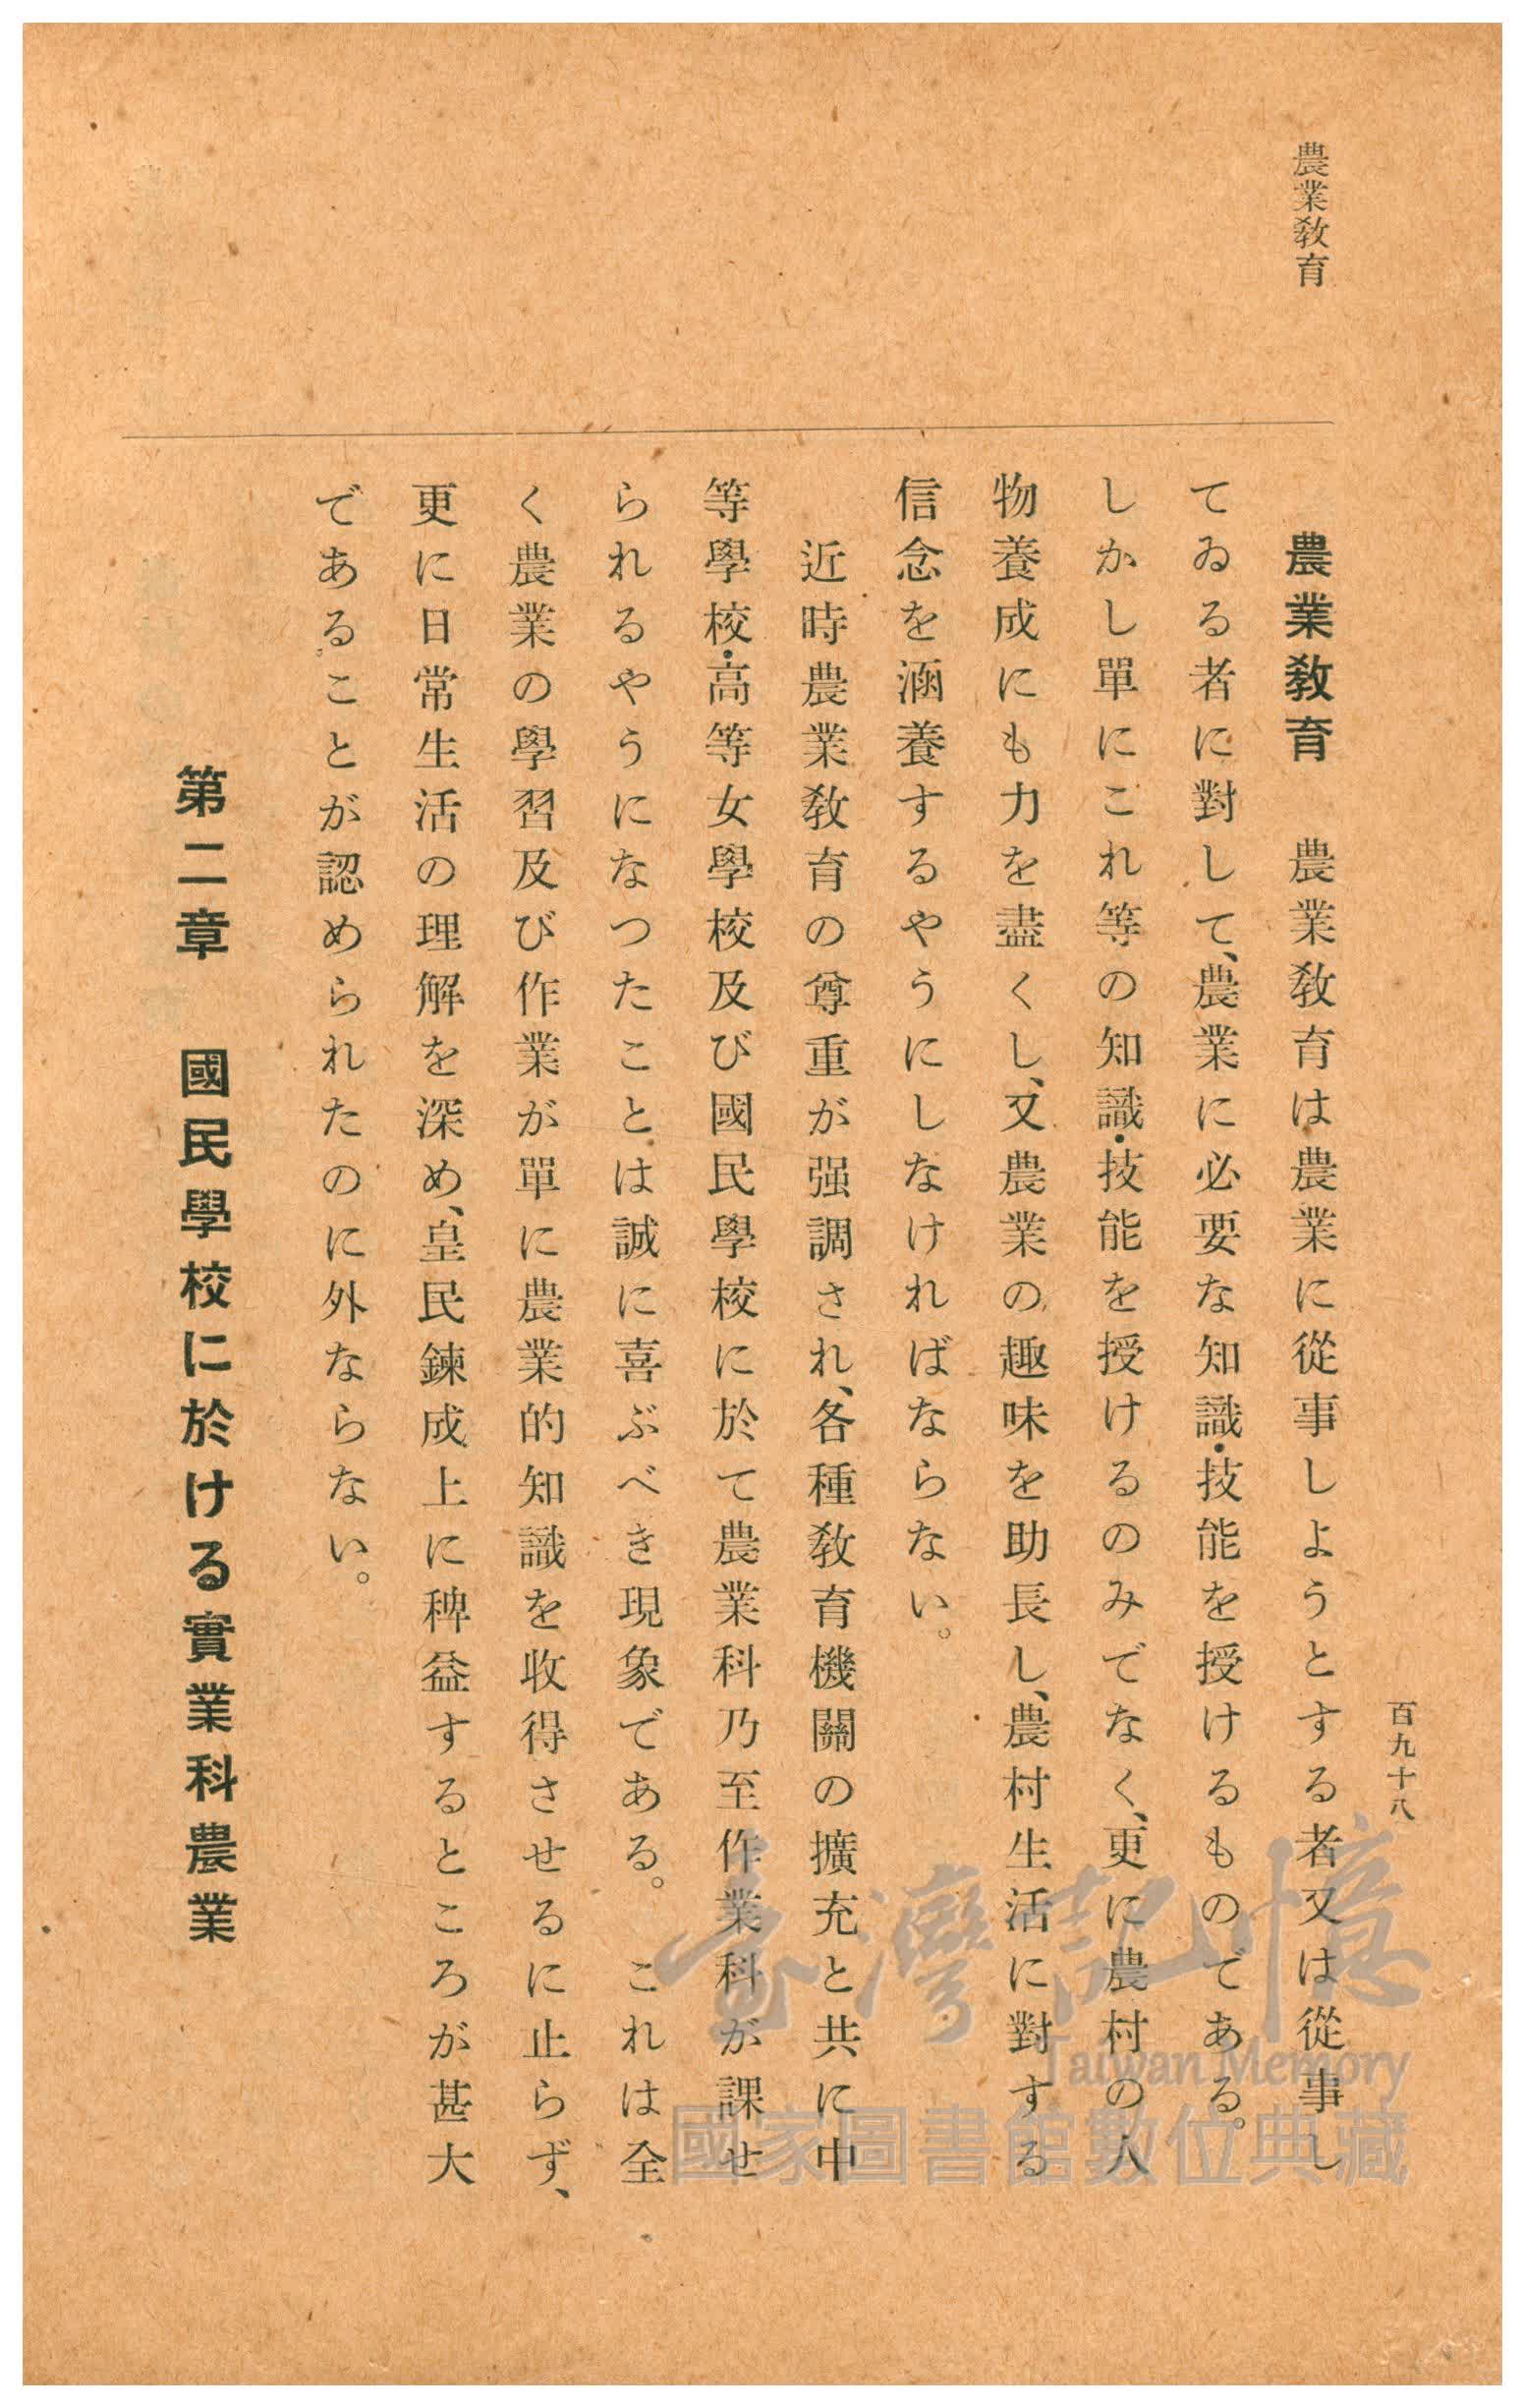 百九十八
農業敎育
農業敎育　農業敎育は農業に從事しようとする者又は從事し
てゐる者に對して、農業に必要な知識・技能を授けるものである。
しかし單にこれ等の知識・技能を授けるのみでなく、更に農村の人
物養成にも力を盡くし、又農業の趣味を助長し、農村生活に對する
信念を涵養するやうにしなければならない。
近時農業敎育の尊重が强調され、各種敎育機關の擴充と共に中
等學校・高等女學校及び國民學校に於て農業科乃至作業科が課せ
られるやうになつたことは誠に喜ぶべき現象である。これは全
く農業の學習及び作業が單に農業的知識を收得させるに止らず、
更に日常生活の理解を深め、皇民鍊成上に稗益するところが甚大
であることが認められたのに外ならない。
第二章　國民學校に於ける實業科農業
臺灣記憶
Taiwan Memory
國家圖書館數位典藏